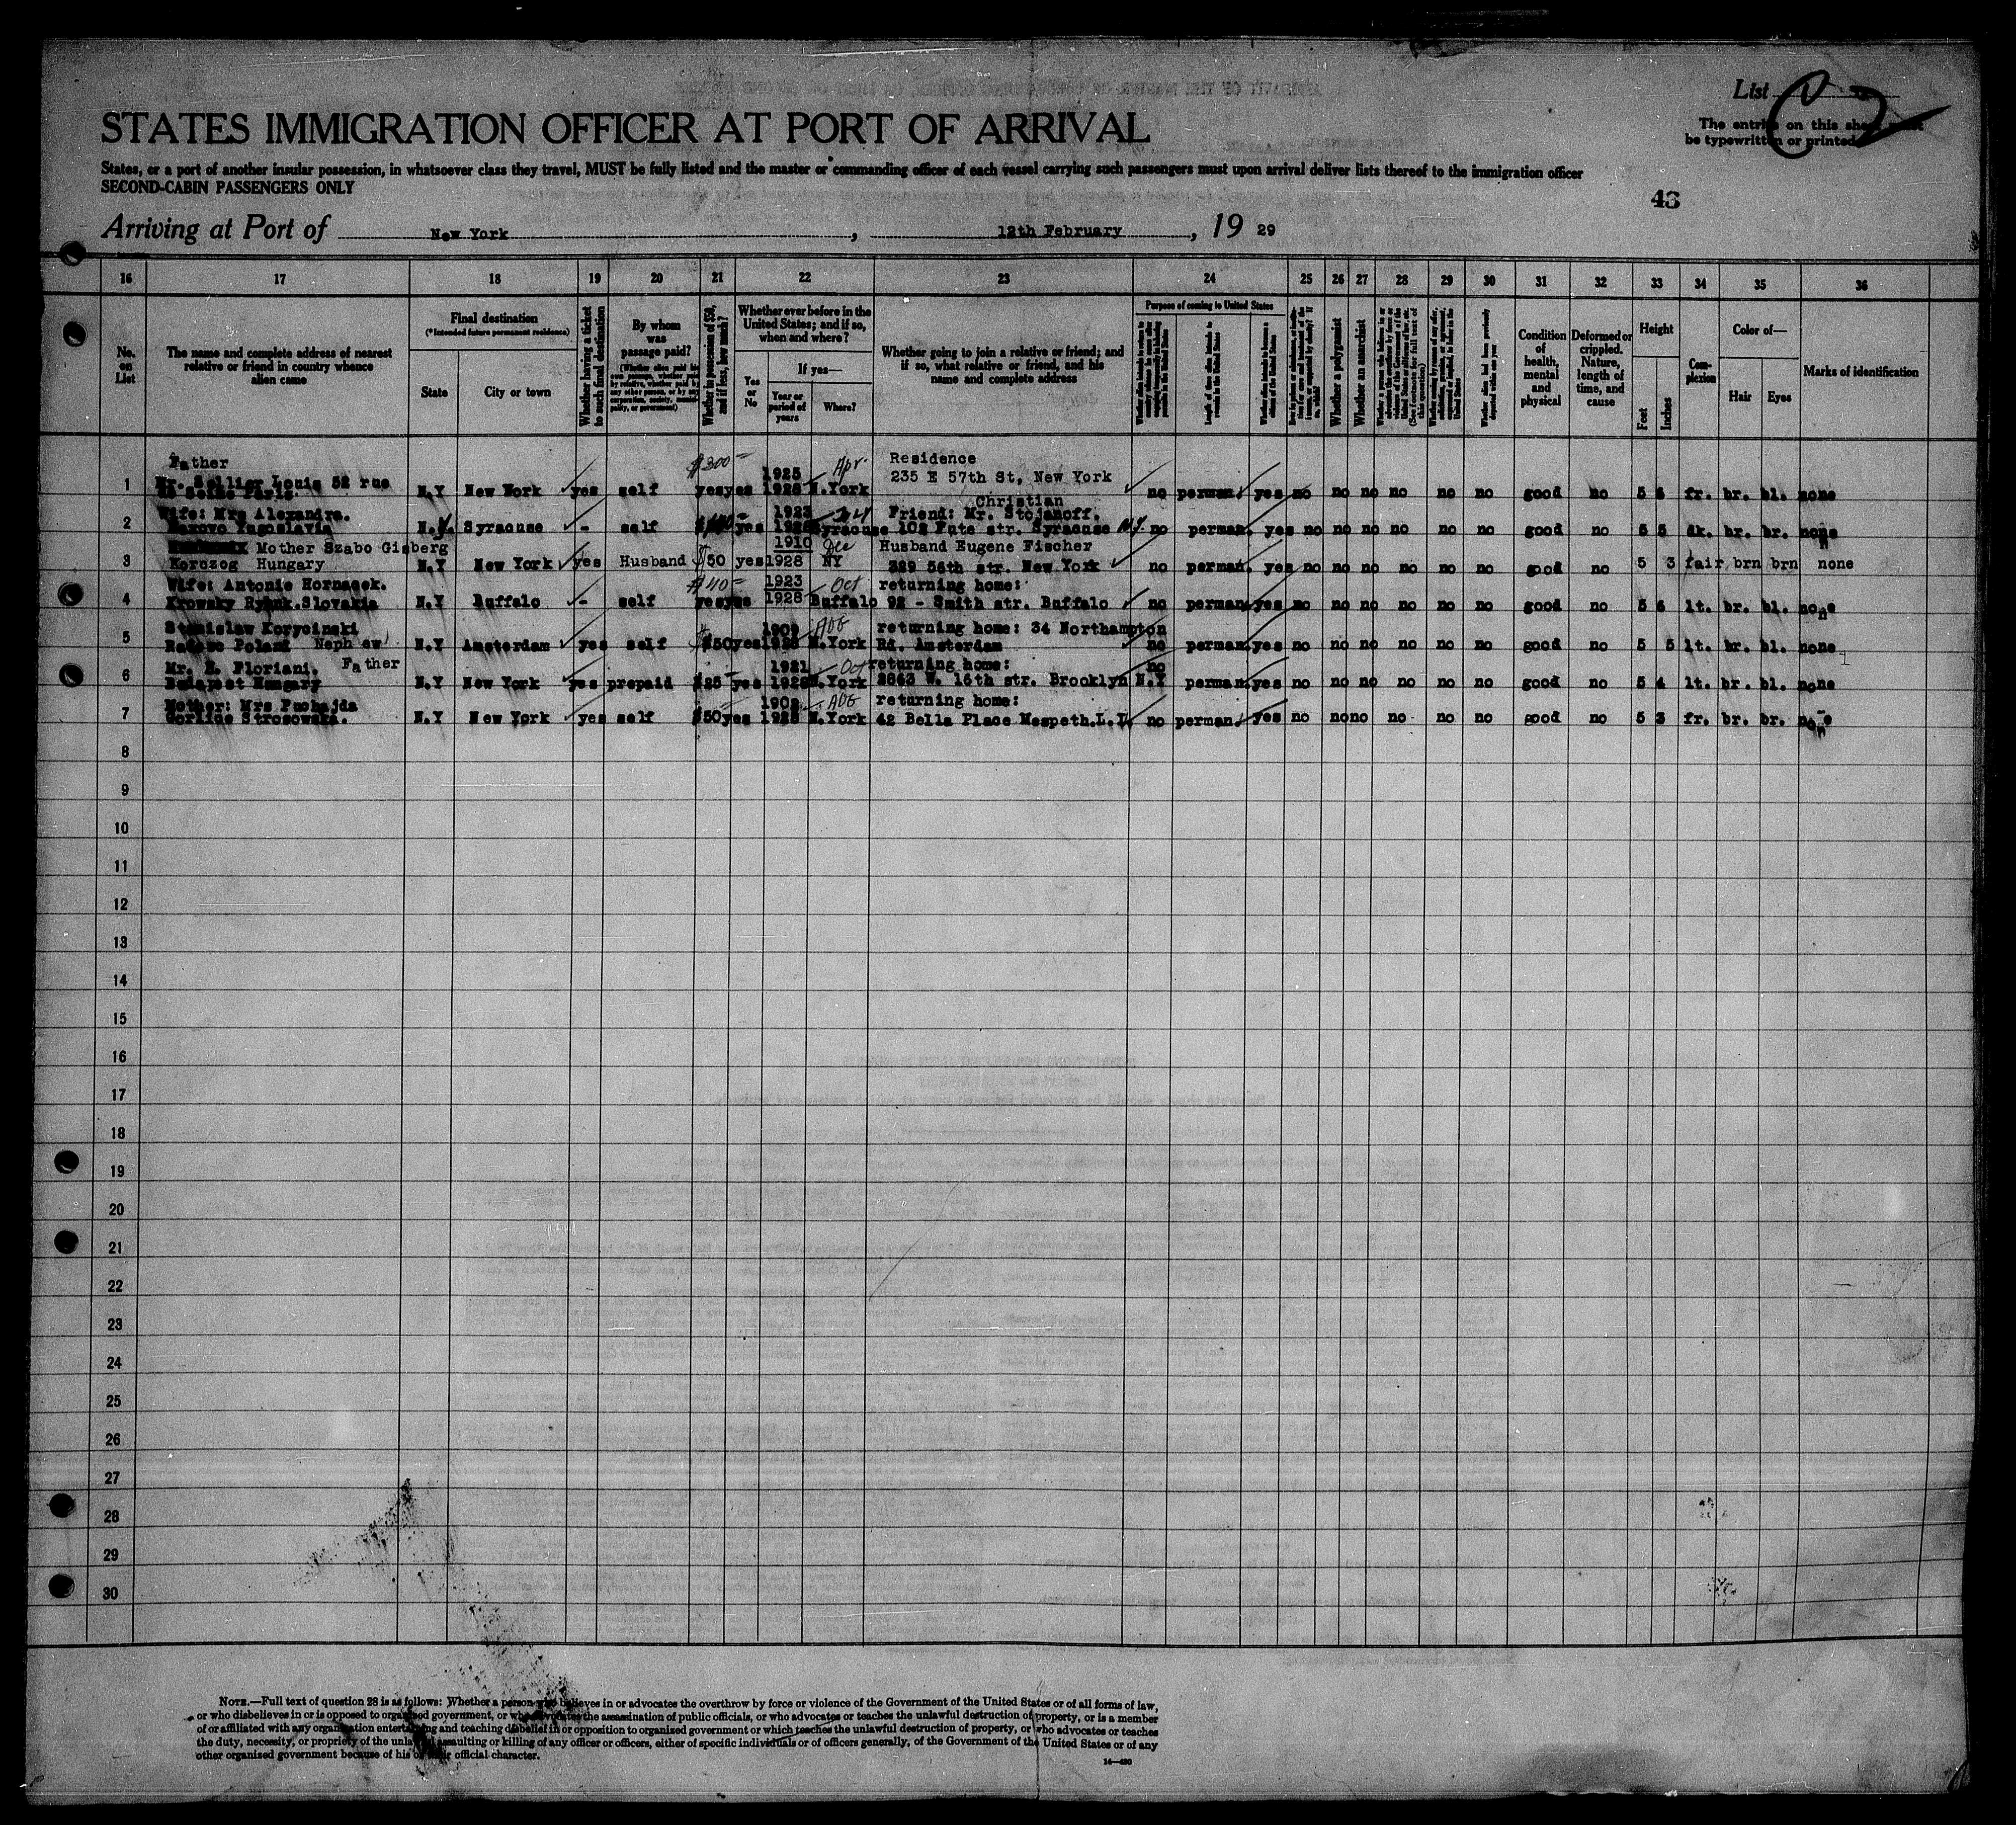 List
C 2
The entries on this sheet must
be typewritten or printed
STATES IMMIGRATION OFFICER AT PORT OF ARRIVAL
States, or a port of another insular possession, in whatsoever class they travel, MUST be fully listed and the master or commanding officer of each vessel carrying such passengers must upon arrival deliver lists thereof to the immigration officer
SECOND-CABIN PASSENGERS ONLY
43
Arriving at Port of New York, 12th February, 19 29
16 17 18 19 20 21 22 23 24 25 26 27 28 29 30 31 32 33 34 35 36
No. on List
The name and complete address of nearest relative or friend in country whence alien came
Final destination
(*Intended future permanent residence)
State
City or town
Whether having a ticket to such final destination
By whom was passage paid?
Whether in possession of $50, and if less, how much?
Whether ever before in the United States; and if so, when and where?
Yes or No
If yes—
Year or period of years
Where?
Whether going to join a relative or friend; and if so, what relative or friend, and his name and complete address
Purpose of coming to United States
Whether a polygamist
Whether an anarchist
Condition of health, mental and physical
Deformed or crippled. Nature, length of time, and cause
Height
Feet
Inches
Complexion
Color of—
Hair
Eyes
Marks of identification
Father $300- 1925 Apr. Residence
1 Louis 52 rue Paris N.Y New York yes self yes yes 1928 N.York 235 E 57th St, New York no perman. yes no no no no no no good no 5 6 fr. br. bl. none
Wife: Mrs Alexandra. 1923 Christian Friend: Mr. Stojanoff.
2 Yugoslavia N.Y. Syracuse - self yes 1928 Syracuse 102 Fate str. Syracuse N.Y. no perman. yes no no no no no no good no 5 5 dk. br. br. none
Mother Szabo Gisberg 1910 Dec Husband Eugene Fischer
3 Korczog Hungary N.Y New York yes Husband $50 yes 1928 NY 329 56th str. New York no perman. yes no no no no no no good no 5 3 fair brn brn none
Wife: Antonie Hornacek. $40- 1923 Oct returning home:
4 Slovakia N.Y Buffalo - self yes yes 1928 Buffalo 92 - Smith str. Buffalo no perman yes no no no no no no good no 5 6 lt. br. bl. none
Stanislaw Korycinski 1909 Aug returning home: 34 Northampton
5 Poland Nephew N.Y Amsterdam yes self $50 yes 1928 N.York Rd. Amsterdam no perman. yes no no no no no no good no 5 5 lt. br. bl. none
Mr. E. Floriani. Father 1921 Oct returning home: no
6 Budapest Hungary N.Y New York yes prepaid $25 yes 1928 N.York 2863 W. 16th str. Brooklyn N.Y perman. yes no no no no no no good no 5 4 lt. br. bl. none
Mother: Mrs Puchajda 1902 Aug returning home:
7 Gorlice Strosowska. N.Y New York yes self $50 yes 1928 N.York 42 Bella Place Mespeth.L.I. no perman. yes no no no no no no good no 5 3 fr. br. br. none
8
9
10
11
12
13
14
15
16
17
18
19
20
21
22
23
24
25
26
27
28
29
30
NOTE.—Full text of question 28 is as follows: Whether a person who believes in or advocates the overthrow by force or violence of the Government of the United States or of all forms of law,
or who disbelieves in or is opposed to organized government, or who advocates the assassination of public officials, or who advocates or teaches the unlawful destruction of property, or is a member
of or affiliated with any organization entertaining and teaching disbelief in or opposition to organized government or which teaches the unlawful destruction of property, or who advocates or teaches
the duty, necessity, or propriety of the unlawful assaulting or killing of any officer or officers, either of specific individuals or of officers generally, of the Government of the United States or of any
other organized government because of his or their official character.
14—490